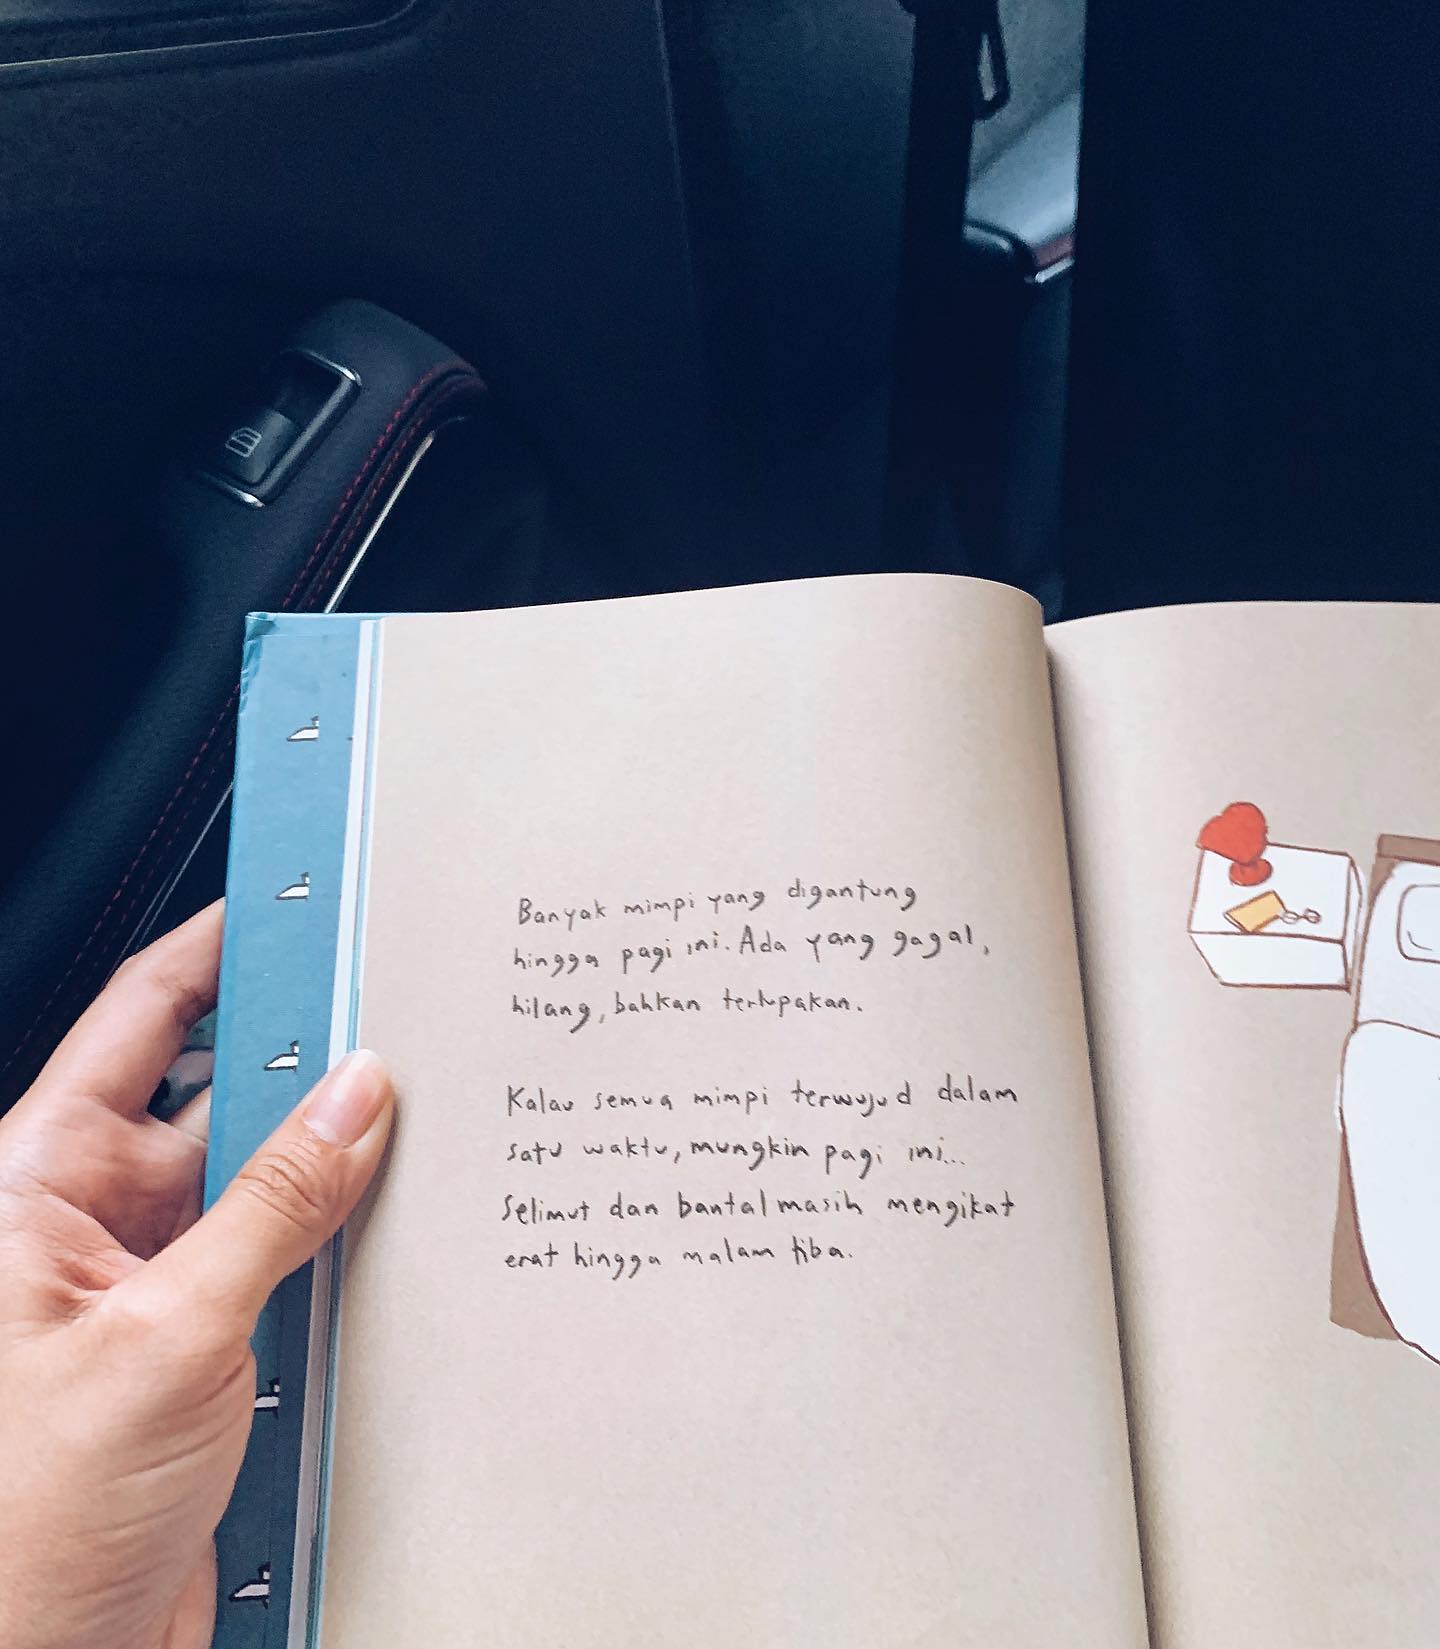 Banyak mimpi yang digantung
hingga pagi ini. Ada yang gagal,
hilang, bahkan terlupakan.
Kalau semua mimpi terwujud dalam
satu waktu, mungkin pagi ini...
Selimut dan bantal masih mengikat
erat hingga malam tiba.